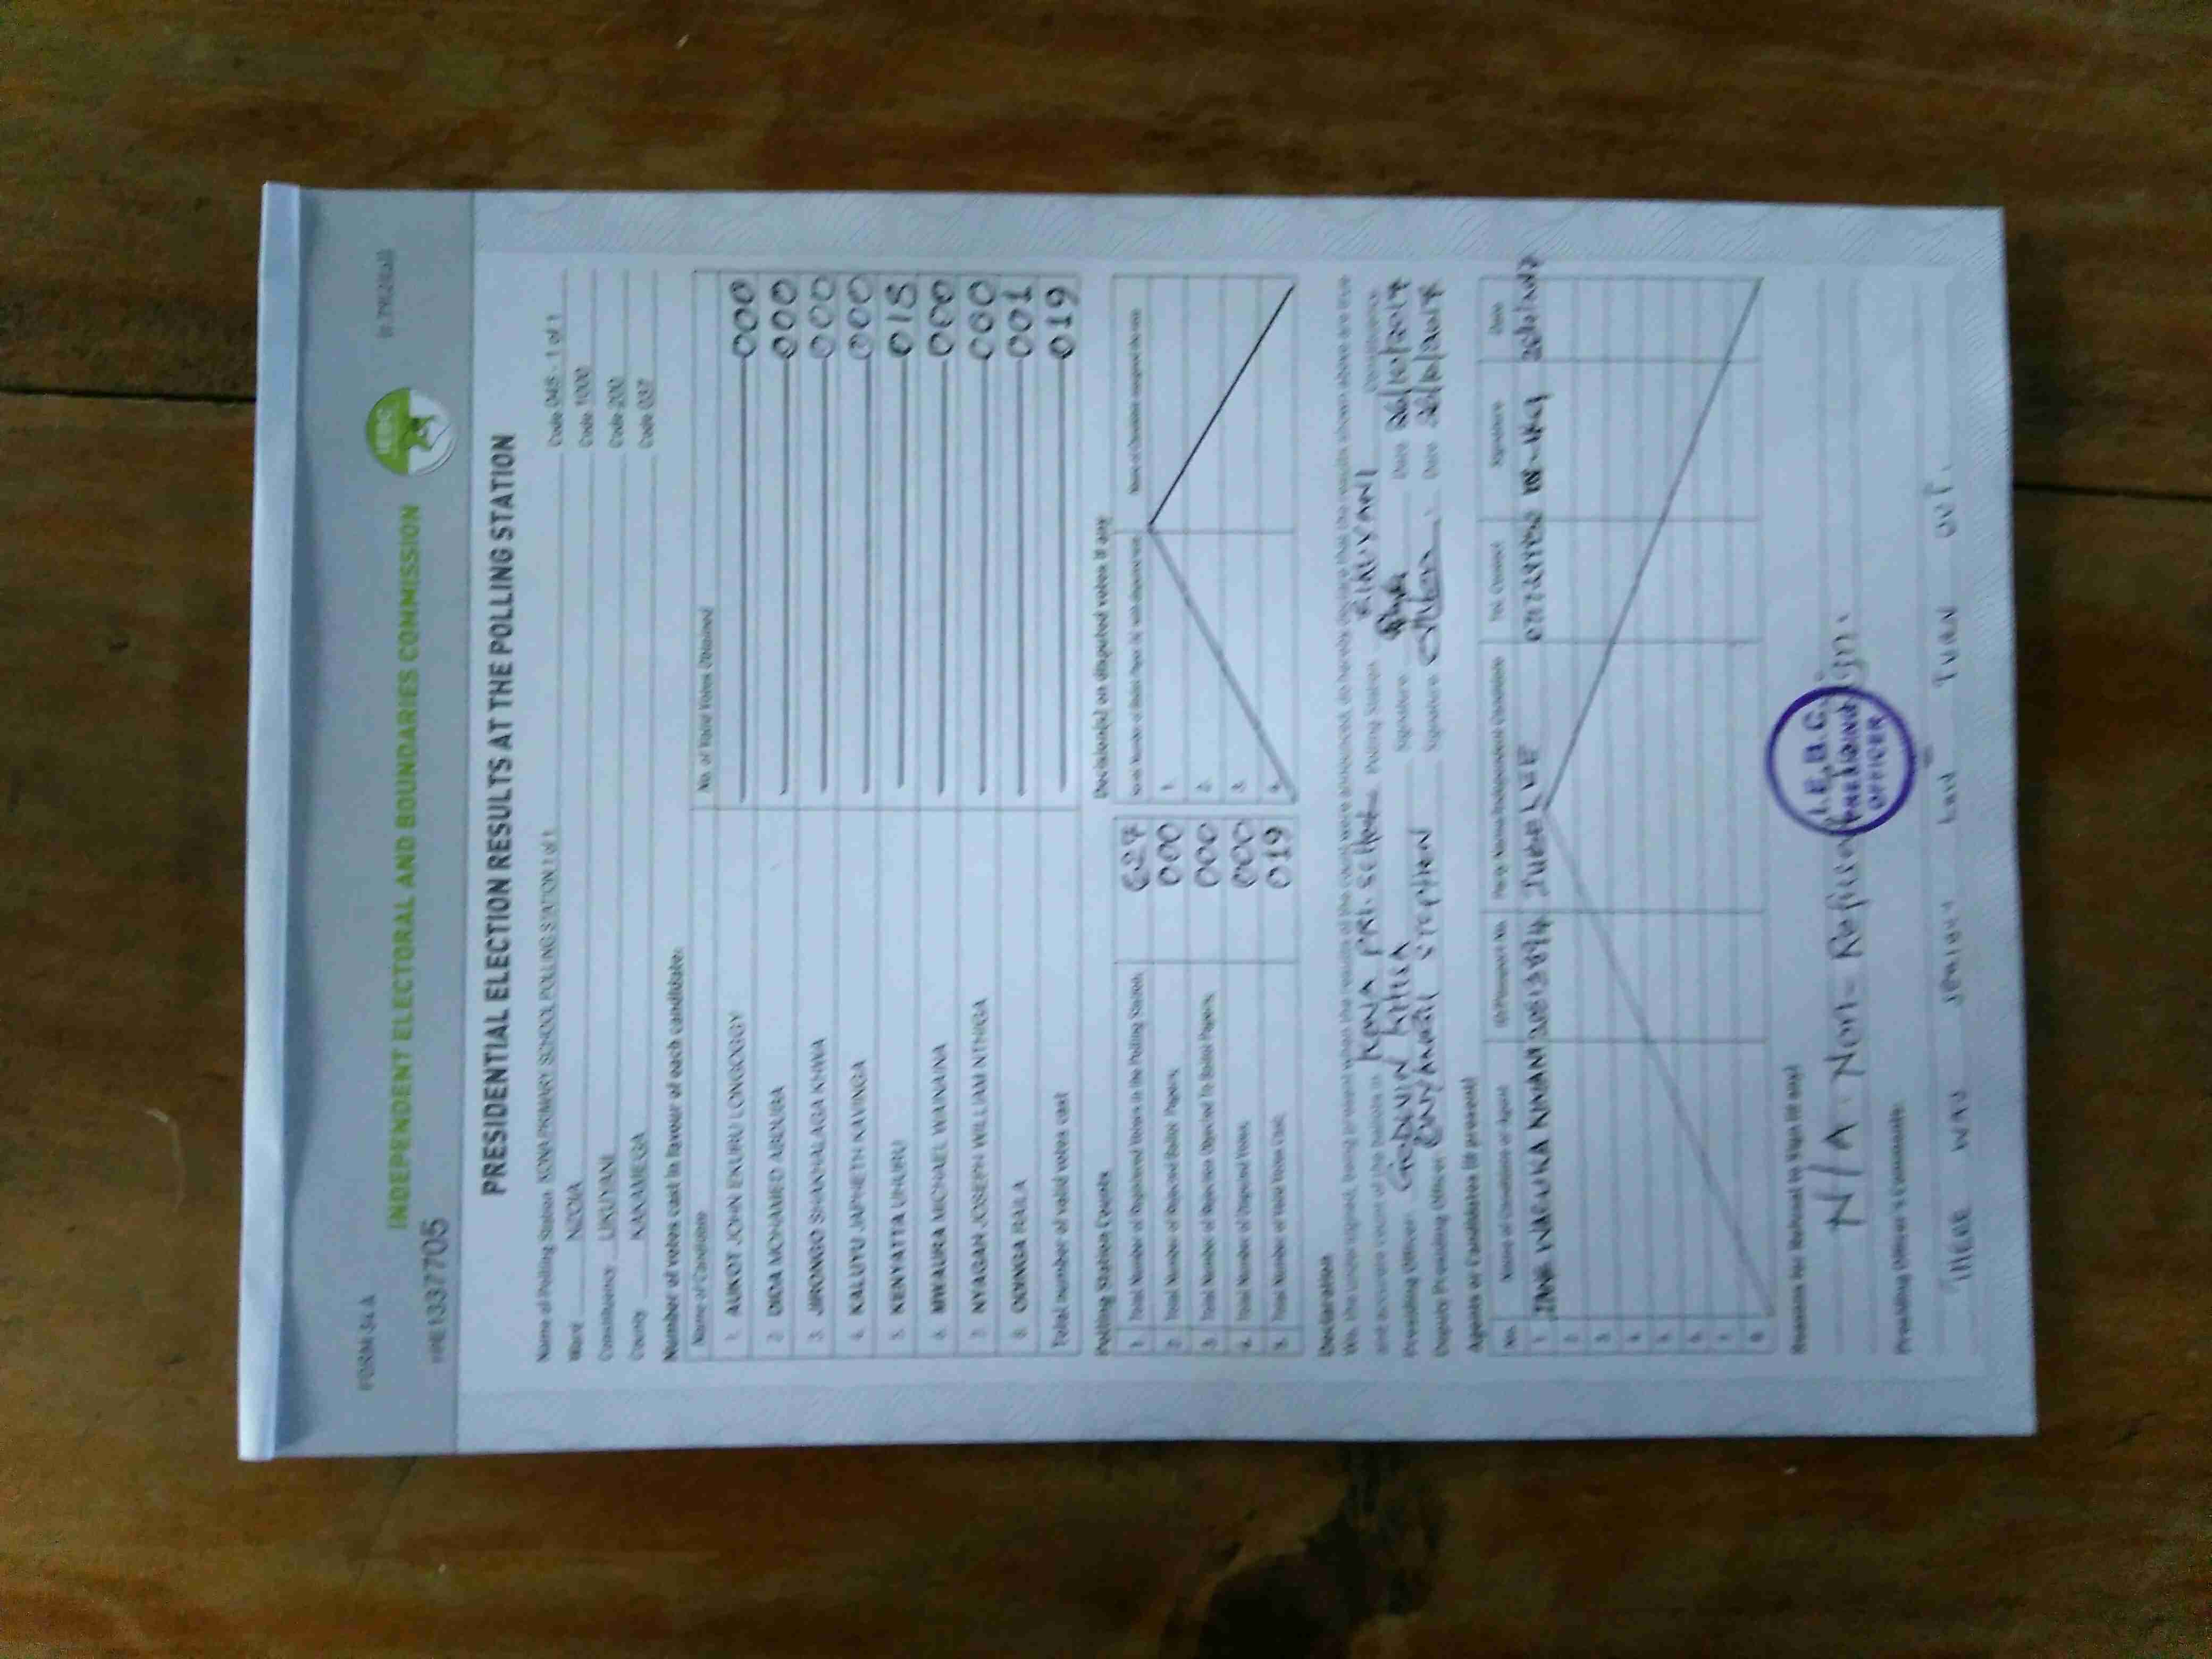 FORM 34 A
INDEPENDENT ELECTORAL AND BOUNDARIES COMMISSION
IEBC
PRESIDENTIAL ELECTION RESULTS AT THE POLLING STATION
Name of Polling Station KONA PRIMARY SCHOOL POLLING STATION 1 of 1 Code 048 - 1 of 1
Ward NZOIA Code 1000
Constituency LIKUYANI Code 200
County KAKAMEGA Code 037
Number of votes cast in favour of each candidate:
Name of Candidate No. of Valid Votes Obtained
1. AUKOT JOHN EKURU LONGOGGY 000
2. DIDA MOHAMED ABDUBA 000
3. JIRONGO SHAKHALAGA KHWA 000
4. KALUYU JAPHETH KAVINGA 000
5. KENYATTA UHURU 018
6. MWAURA MICHAEL WAINAINA 000
7. NYAGAH JOSEPH WILLIAM NTHIGA 000
8. ODINGA RAILA 001
Total number of valid votes cast 019
Polling Station Counts
1. Total Number of Registered Voters in the Polling Station 627
2. Total Number of Rejected Ballot Papers 000
3. Total Number of Rejection Objected To Ballot Papers 000
4. Total Number of Disputed Votes 000
5. Total Number of Valid Votes Cast 019
Decision(s) on disputed votes if any
1.
2.
3.
4.
Declaration
We, the undersigned, being present when the results of the count were announced, do hereby declare that the results shown above are true
and accurate count of the ballots in KONA PRI. SCHOOL Polling Station LIKUYANI Constituency
Presiding Officer Signature Date 26/10/2017
Deputy Presiding Officer STEPHEN Signature Date 26/10/2017
Agents or Candidates (if present)
No. Name of Candidate or Agent ID/Passport No. Party Name/Independent Candidate Tel. Contact Signature Date
1 JUBILEE
2
3
4
5
6
7
8
Reasons for Refusal to Sign (if any)
N/A. Non-Refused sign.
I.E.B.C.
PRESIDING
OFFICER
Presiding Officer's Comments:
THERE WAS LOW TURN OUT.